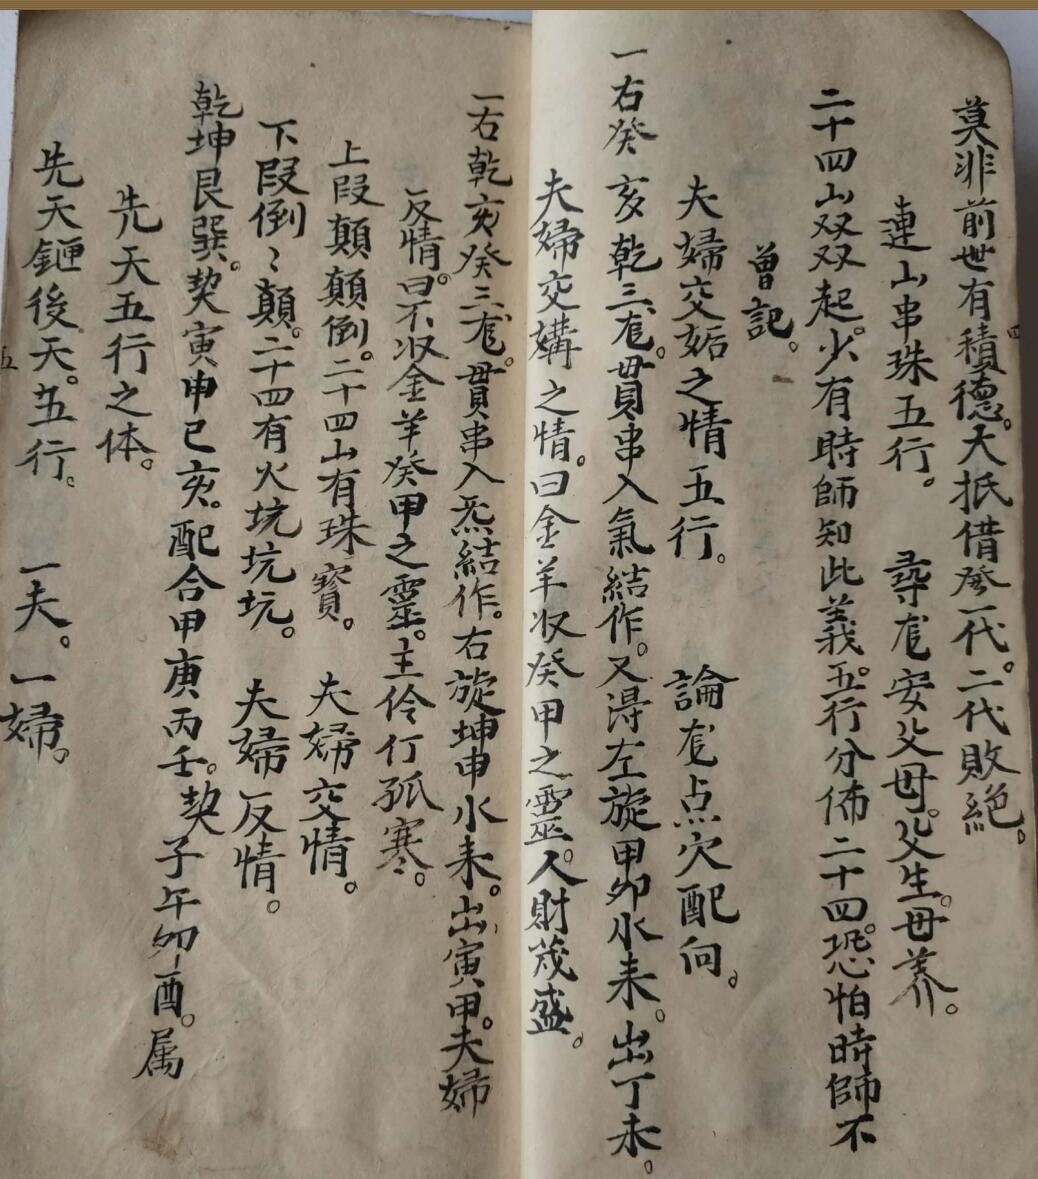 莫非前世有積德。大抵借發一代。二代敗絕。
連山串珠五行。 尋龙安父母。父生。母养。
二十四山双双起。火有時師知此義。五行分佈二十四。恐怕時師不
曾記。
夫婦交姤之情五行。 論龙点穴配向。
一右癸亥乾三龙。毌貫串入氣結作。又得左旋甲卯水耒。出丁未。
夫婦交媾之情。曰金羊収癸甲之靈。人財茂盛。
一右乾亥癸三龙。貫串入炁結作。右旋坤申水耒。出寅甲。夫婦
反情。曰不収金羊癸甲之靈。主伶仃孤寒。
上叚顛顛倒。二十四山有珠寳。 夫婦交情。
下叚倒〻顛。二十四有火坑坑坑。 夫婦反情。
乾坤艮巽。契寅申巳亥。配合甲庚丙壬。契子午卯酉。属
先天五行之体。
先天鉔後天。五行。 一夫。一婦。
四
五